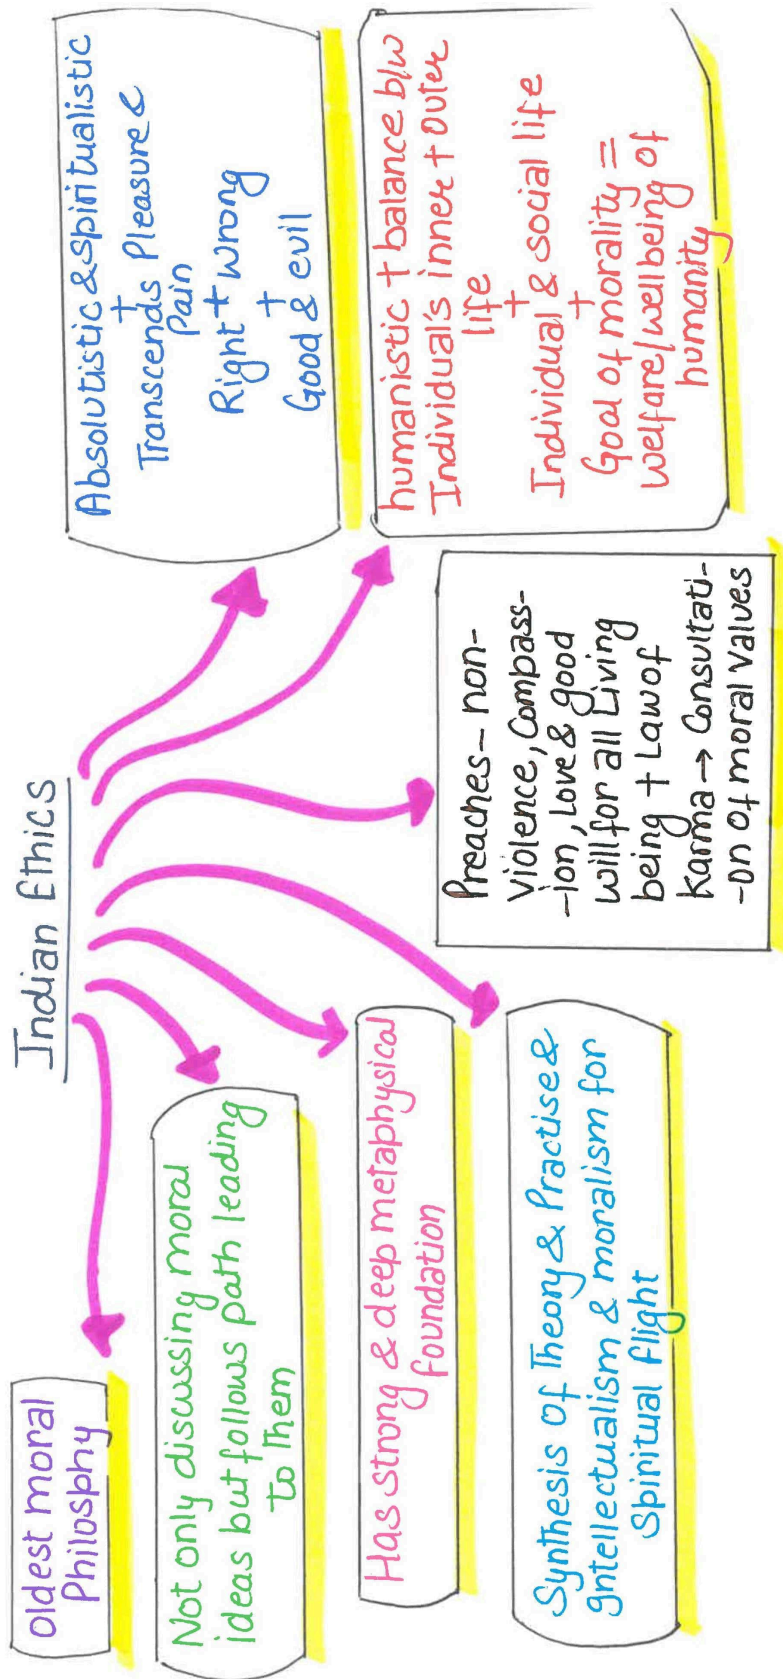 Indian Ethics
Oldest moral
Philosphy
Not only discussing moral
ideas but follows path leading
to them
Has strong & deep metaphysical
foundation
Synthesis of Theory & Practise &
Intellectualism & moralism for
Spiritual flight
Preaches - non-
Violence, Compass-
-ion, Love & good
will for all Living
being + Law of
Karma → Consultati-
-on of moral values
Absolutistic & spiritualistic
+
Transcends Pleasure &
Pain
Right + wrong
+
Good & evil
humanistic + balance b/w
Individual's inner + outer
life
+
Individual & social life
+
Goal of morality =
welfare/wellbeing of
humanity